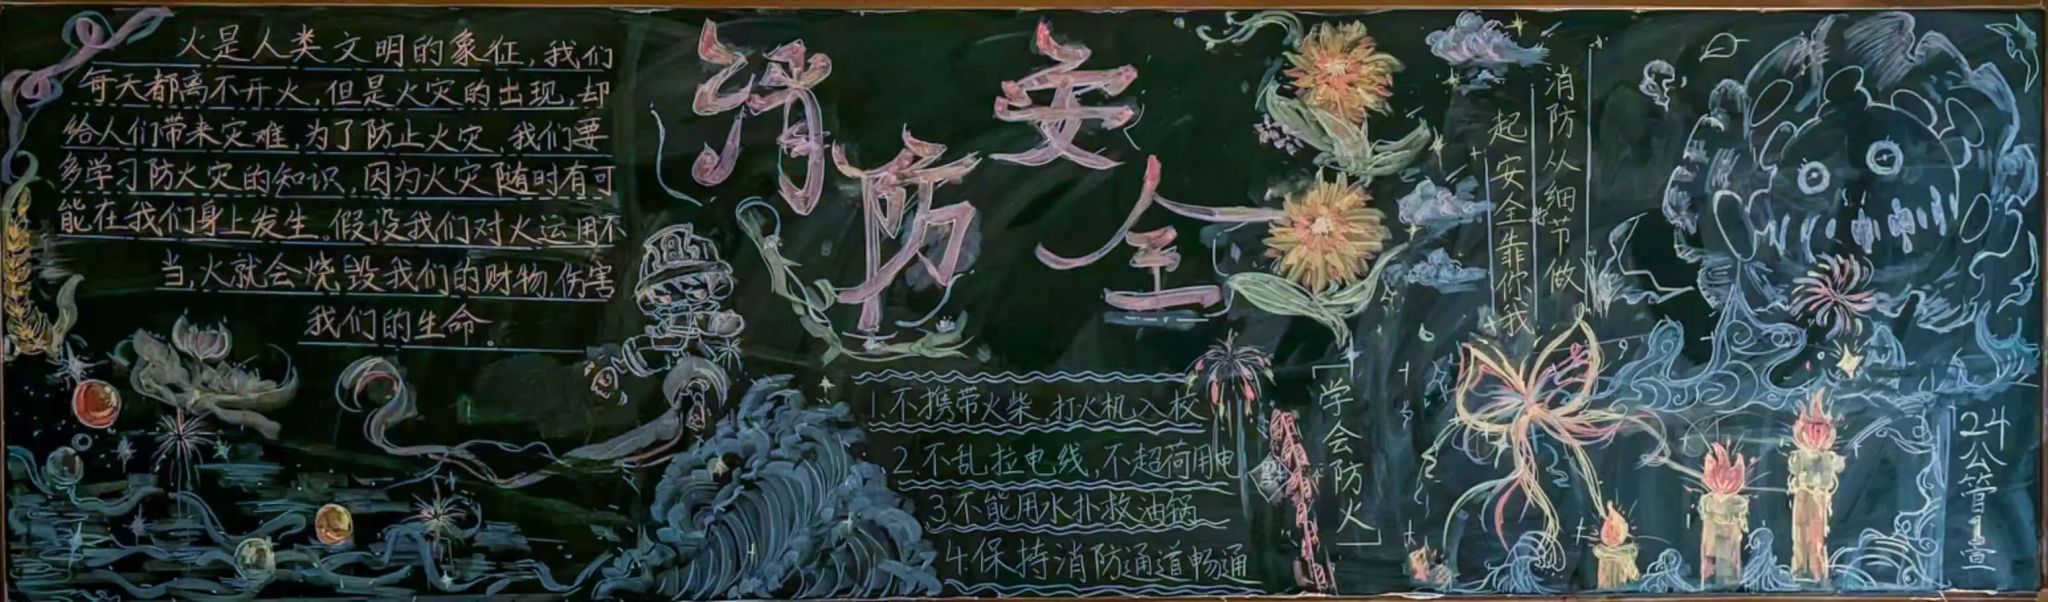 火是人类文明的象征，我们
每天都离不开火，但是火灾的出现，却
给人们带来灾难，为了防止火灾，我们要
多学习防火灾的知识，因为火灾随时有可
能在我们身上发生。假设我们对火运用不
当，火就会烧毁我们的财物，伤害
我们的生命。
消防
安全
1.不携带火柴，打火机入校
2.不乱拉电线，不超荷用电
3.不能用水扑救油锅
4.保持消防通道畅通
[学会防火]
消防从细节做
起安全靠你我
24公管1宣